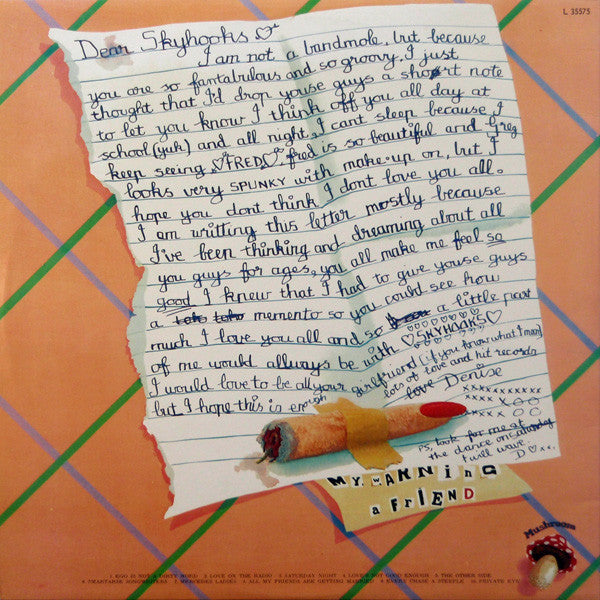 L 35575
Dear Skyhooks ♡
I am not a bandmole, but because
you are so fantabulous and so groovy. I just
thought that I'd drop youse guys a short note
to let you know I think off you all day at
school (yuk) and all night, I cant sleep because I
keep seeing ♡FRED♡. fred is so beautiful and Greg
looks very SPUNKY with make-up on, but I
hope you dont think I dont love you all.
I am writting this letter mostly because
I've been thinking and dreaming about all
you guys for ages, you all make me feel so
good I knew that I had to give youse guys
a memento so you could see how
much I love you all and so a little peart
of me would allways be with ♡SKYHOOKS♡
I would love to be all your girlfriend (if you know what I mean)
but I hope this is enough
lots of love and hit records
love Denise
xxxxxxxxx
xxxxx
xxxx
PS, look for me at
the dance on saturday
I will wave.
D♡xx.
MY WARNinG
a FRiEND
Mushroom
1. EGO IS NOT A DIRTY WORD 2. LOVE ON THE RADIO 3. SATURDAY NIGHT 4. LOVE'S NOT GOOD ENOUGH 5. THE OTHER SIDE
6. SMARTARSE SONGWRITERS 7. MERCEDES LADIES 8. ALL MY FRIENDS ARE GETTING MARRIED 9. EVERY CHASE A STEEPLE 10. PRIVATE EYE